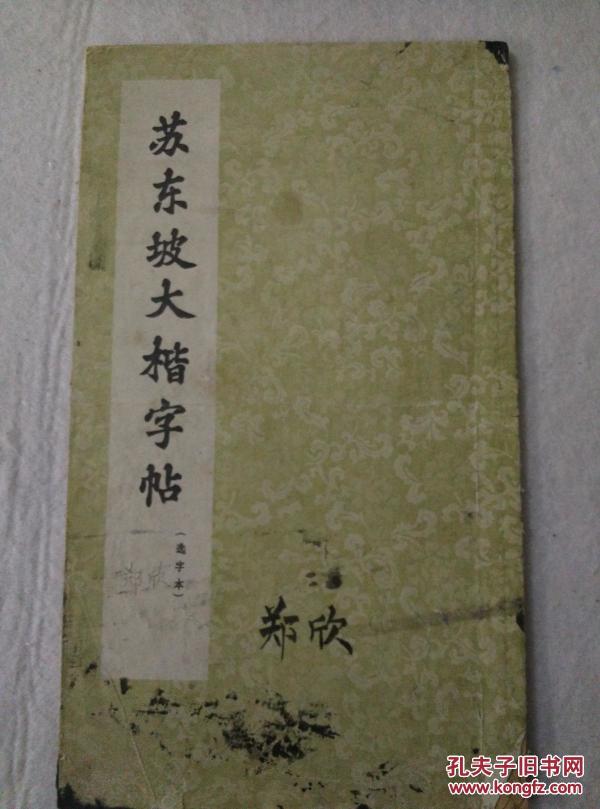 苏东坡大楷字帖
(选字本)
郑欣
郑欣
孔夫子旧书网
www.kongfz.com